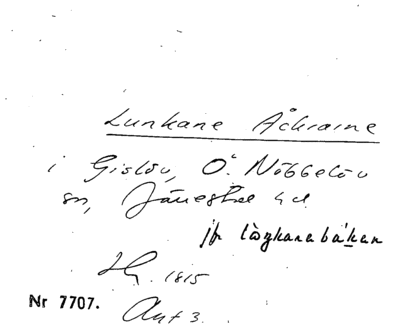 Lunkane Åkrarne
i Gislöv, Ö. Nöbbelöv
sn, Järrestad hd.
jfr làṇkanabákan
1815
Nr 7707.
Akt 3.